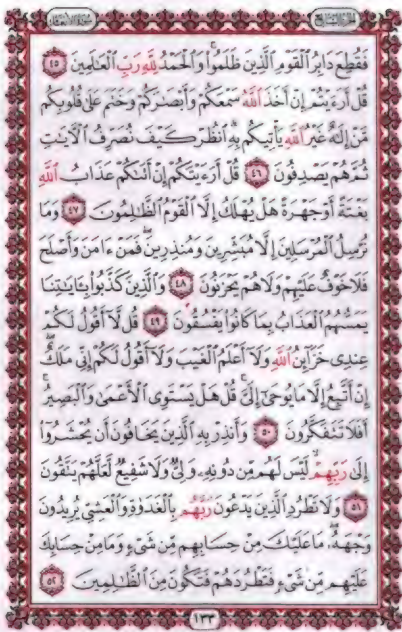 سورة الأنعام الجزء السابع
فَقُطِعَ دَابِرُ الْقَوْمِ الَّذِينَ ظَلَمُوا۟ وَالْحَمْدُ لِلَّهِ رَبِّ الْعَالَمِينَ ٤٥
قُلْ أَرَءَيْتُمْ إِنْ أَخَذَ اللَّهُ سَمْعَكُمْ وَأَبْصَارَكُمْ وَخَتَمَ عَلَىٰ قُلُوبِكُم
مَّنْ إِلَٰهٌ غَيْرُ اللَّهِ يَأْتِيكُم بِهِ انظُرْ كَيْفَ نُصَرِّفُ الْآيَاتِ
ثُمَّ هُمْ يَصْدِفُونَ ٤٦ قُلْ أَرَءَيْتَكُمْ إِنْ أَتَاكُمْ عَذَابُ اللَّهِ
بَغْتَةً أَوْ جَهْرَةً هَلْ يُهْلَكُ إِلَّا الْقَوْمُ الظَّالِمُونَ ٤٧ وَمَا
نُرْسِلُ الْمُرْسَلِينَ إِلَّا مُبَشِّرِينَ وَمُنذِرِينَ فَمَنْ ءَامَنَ وَأَصْلَحَ
فَلَا خَوْفٌ عَلَيْهِمْ وَلَا هُمْ يَحْزَنُونَ ٤٨ وَالَّذِينَ كَذَّبُوا۟ بِـَٔايَاتِنَا
يَمَسُّهُمُ الْعَذَابُ بِمَا كَانُوا۟ يَفْسُقُونَ ٤٩ قُل لَّا أَقُولُ لَكُمْ
عِندِى خَزَائِنُ اللَّهِ وَلَا أَعْلَمُ الْغَيْبَ وَلَا أَقُولُ لَكُمْ إِنِّى مَلَكٌ
إِنْ أَتَّبِعُ إِلَّا مَا يُوحَىٰ إِلَىَّ قُلْ هَلْ يَسْتَوِى الْأَعْمَىٰ وَالْبَصِيرُ
أَفَلَا تَتَفَكَّرُونَ ٥٠ وَأَنذِرْ بِهِ الَّذِينَ يَخَافُونَ أَن يُحْشَرُوا۟
إِلَىٰ رَبِّهِمْ لَيْسَ لَهُم مِّن دُونِهِ وَلِىٌّ وَلَا شَفِيعٌ لَّعَلَّهُمْ يَتَّقُونَ
٥١ وَلَا تَطْرُدِ الَّذِينَ يَدْعُونَ رَبَّهُم بِالْغَدَوٰةِ وَالْعَشِىِّ يُرِيدُونَ
وَجْهَهُ مَا عَلَيْكَ مِنْ حِسَابِهِم مِّن شَىْءٍ وَمَا مِنْ حِسَابِكَ
عَلَيْهِم مِّن شَىْءٍ فَتَطْرُدَهُمْ فَتَكُونَ مِنَ الظَّالِمِينَ ٥٢
١٣٣